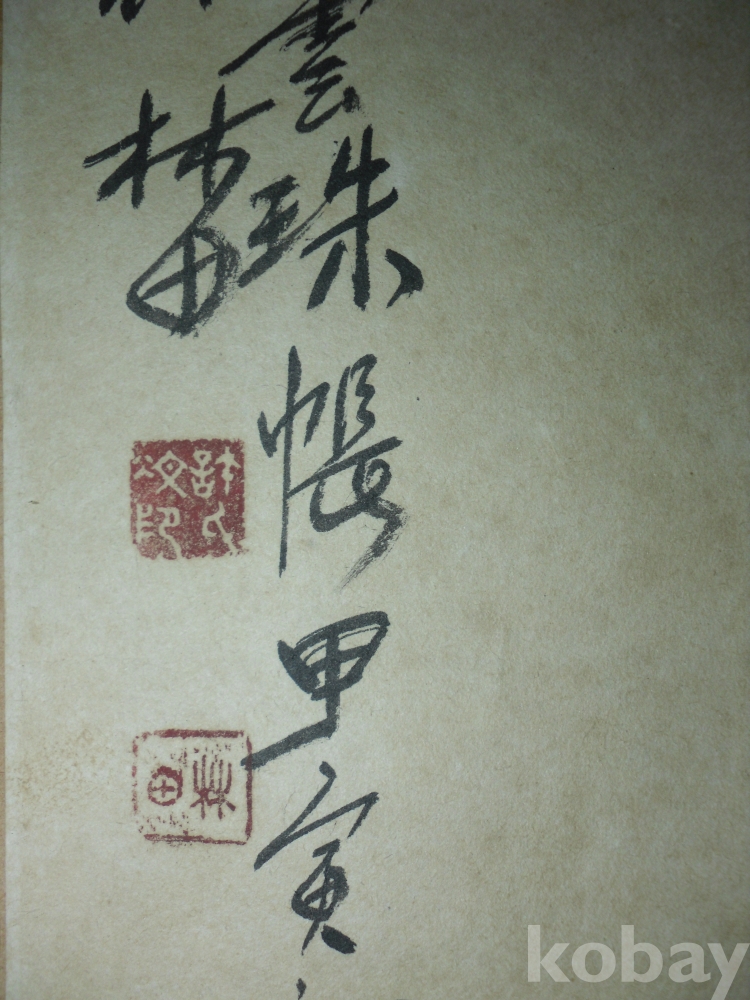 雲珠帳甲寅
林田
許氏
印
林田
kobay